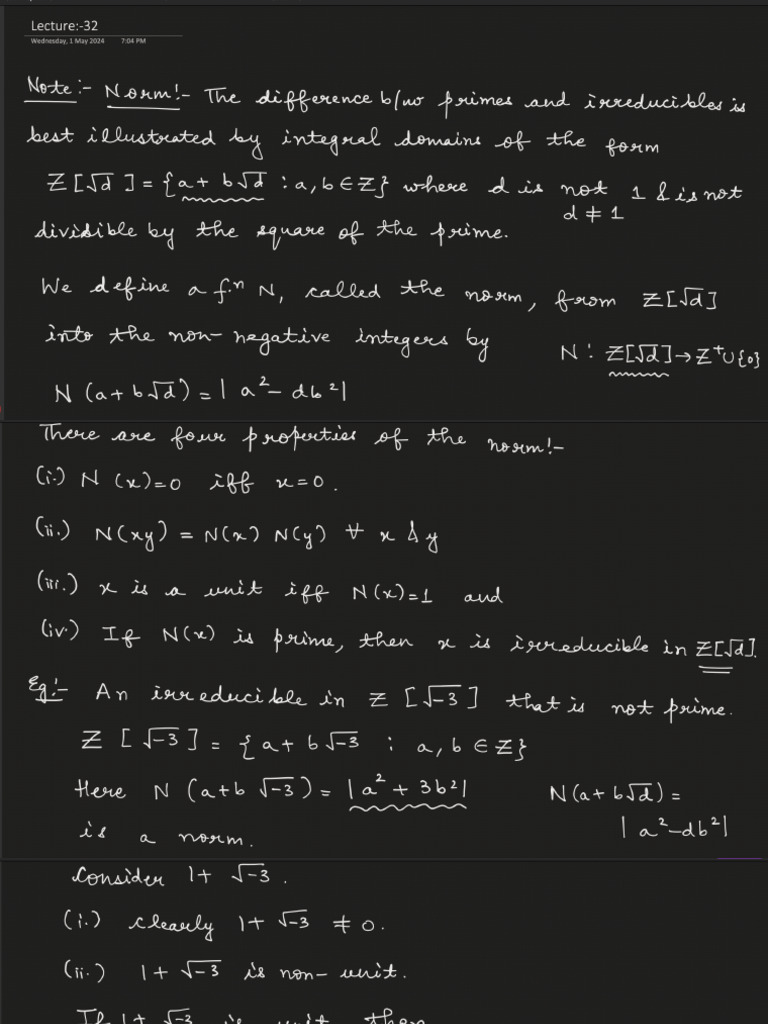 Lecture:-32
Wednesday, 1 May 2024 7:04 PM
Note:- Norm!- The difference b/w primes and irreducibles is
best illustrated by integral domains of the form
Z[√d] = {a + b√d : a, b ∈ Z} where d is not 1 & is not
d ≠ 1
divisible by the square of the prime.
We define a f.n N, called the norm, from Z[√d]
into the non-negative integers by
N : Z[√d] → Z⁺∪{0}
N (a + b√d) = | a² - db² |
There are four properties of the norm!-
(i.) N (x)=0 iff x=0.
(ii.) N(xy) = N(x) N(y) ∀ x & y
(iii.) x is a unit iff N(x)=1 and
(iv.) If N(x) is prime, then x is irreducible in Z[√d].
Eg!- An irreducible in Z [√-3] that is not prime.
Z [√-3] = {a + b√-3 : a, b ∈ Z}
Here N (a+b √-3) = |a² + 3b²|
N(a + b√d) =
|a²-db²|
is a norm.
Consider 1+ √-3.
(i.) clearly 1+ √-3 ≠ 0.
(ii.) 1+ √-3 is non-unit.
If 1+ √-3 is unit then